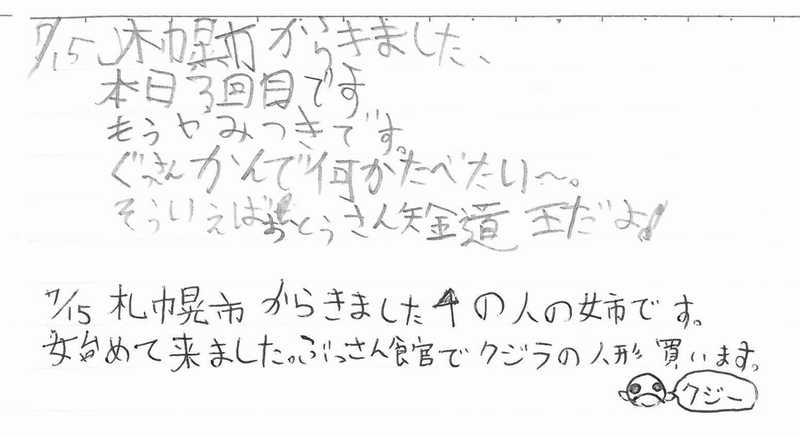 7/15 札幌市からきました、
本日3回目です
もうやみつきです。
ぐっさんかんで何かたべたい～。
そういえばおとうさん鉄道王だよ!
7/15 札幌市からきました↑の人の姉です。
始めて来ました。ぶっさん館でクジラの人形買います。
クジー